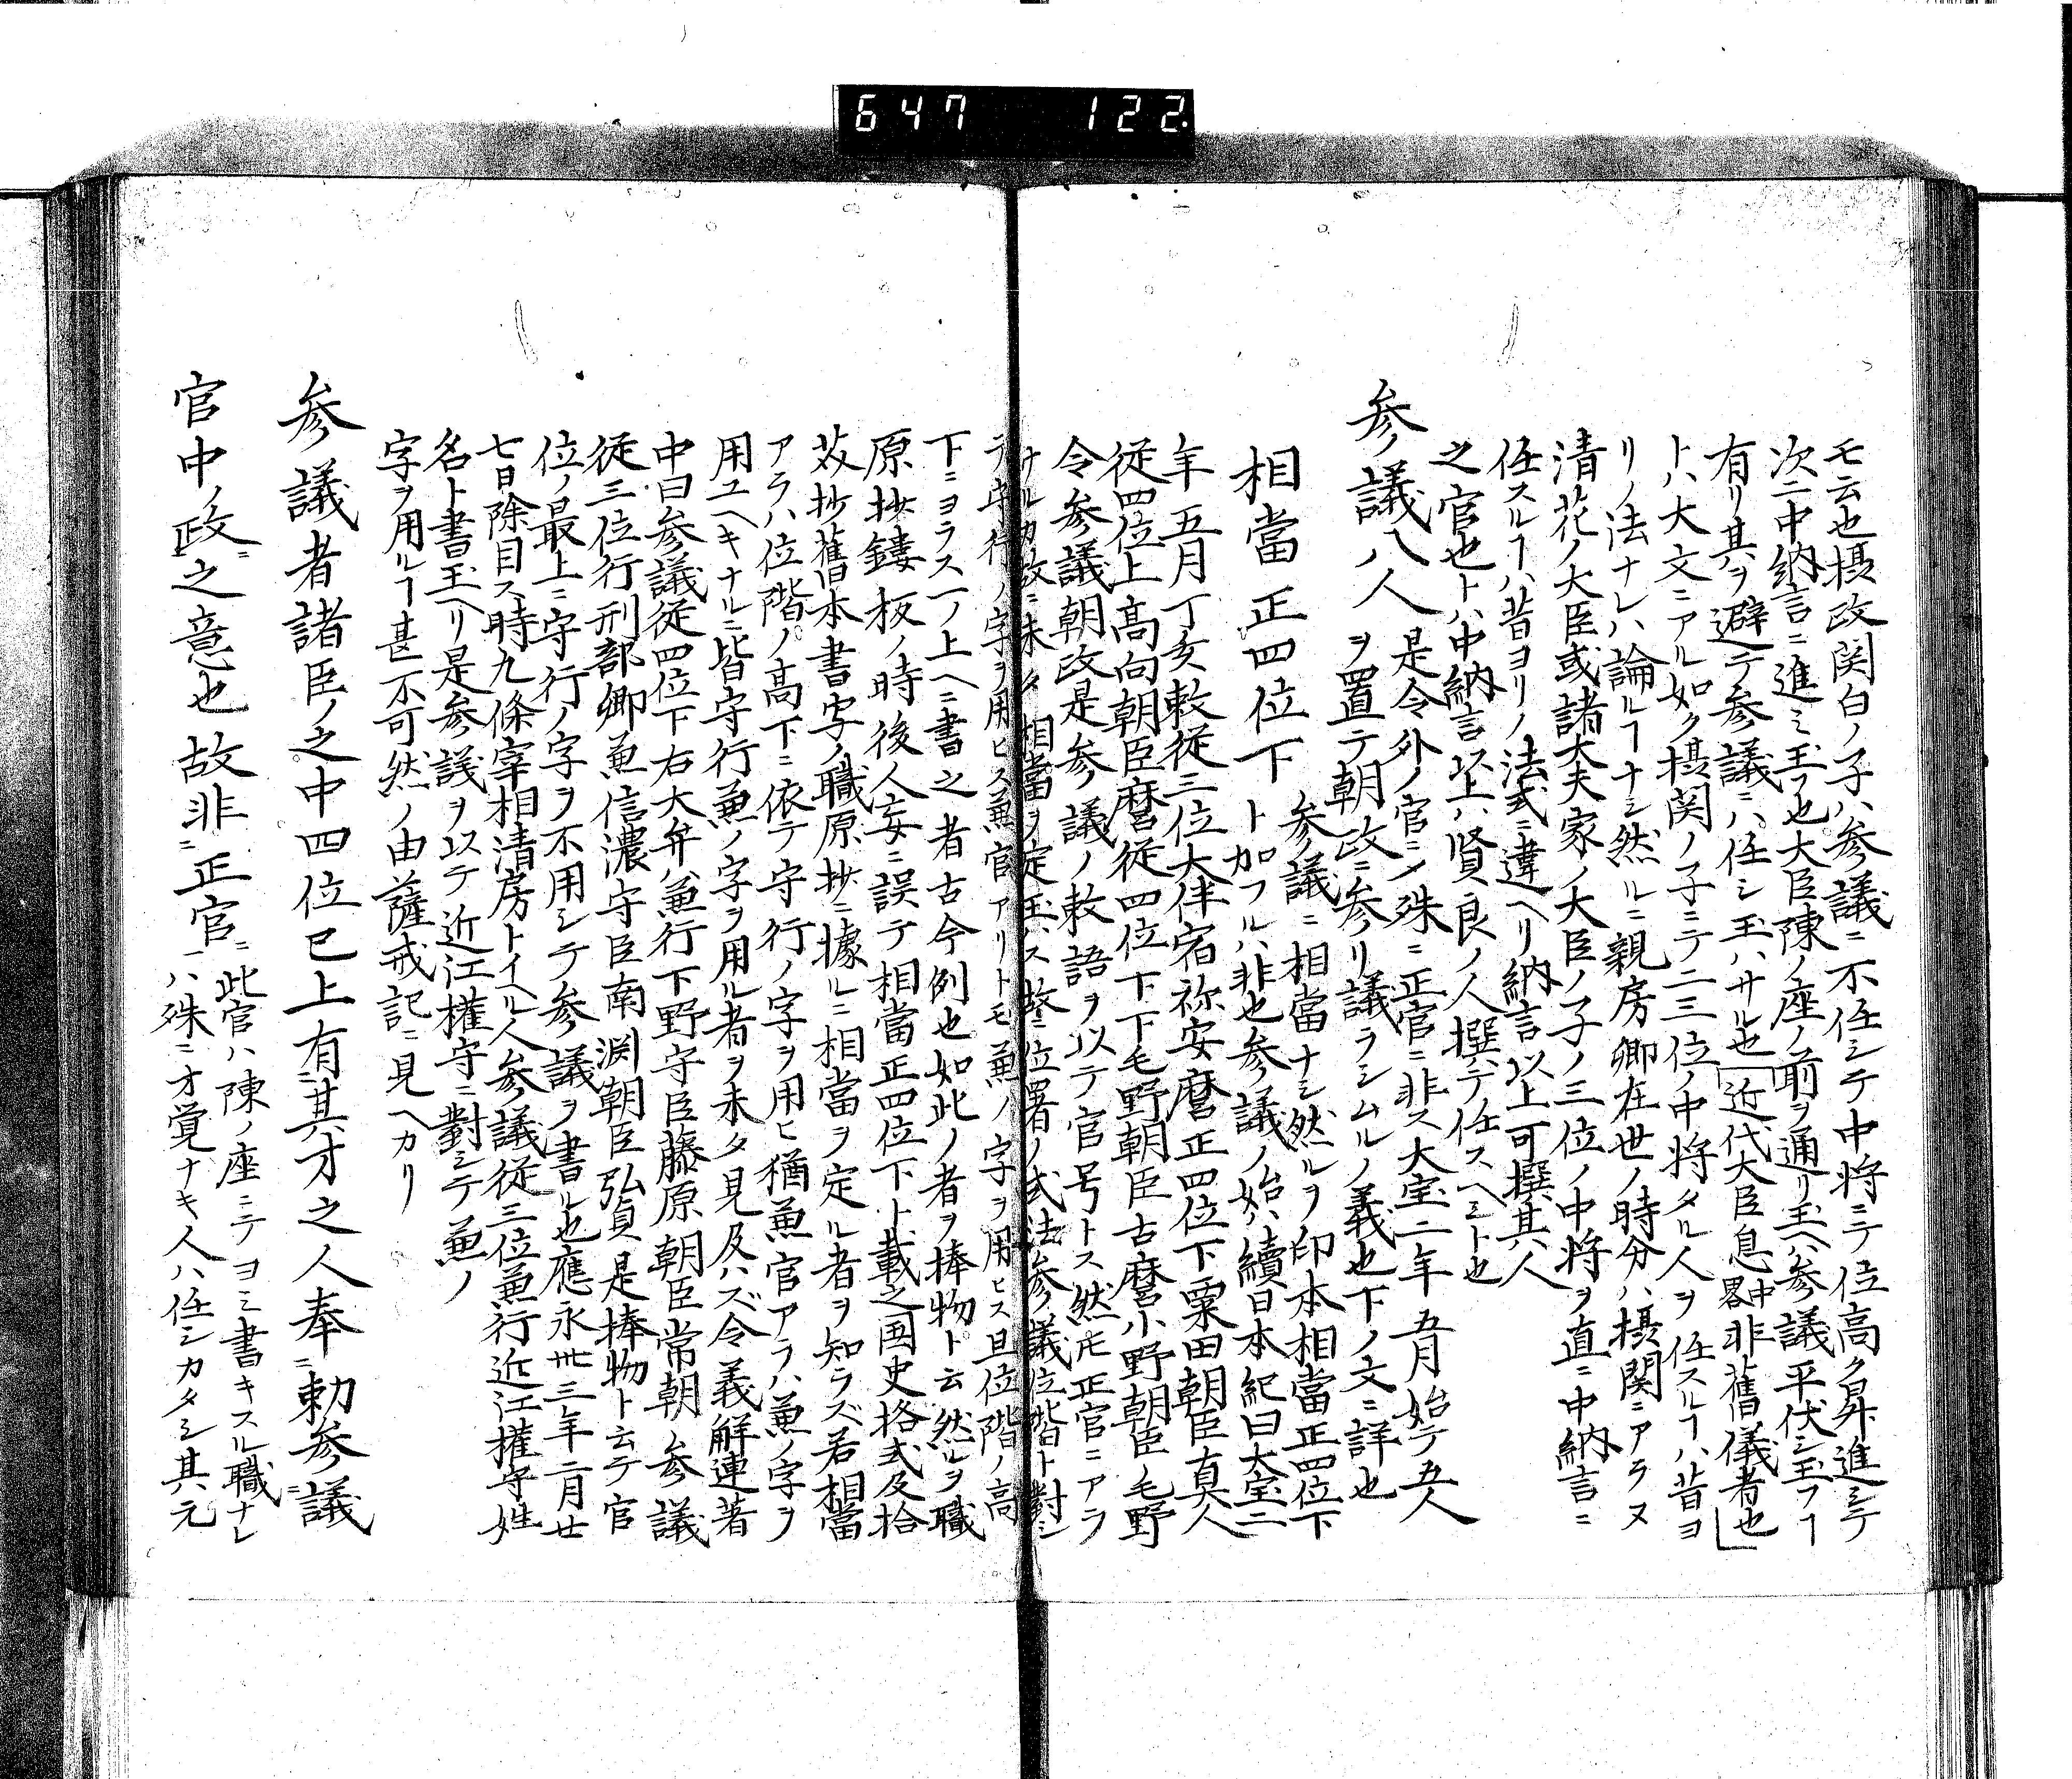 647 122.
モ云也摂政関白ノ子ハ参議ニ不任シテ中将ニテ位高ク昇進シテ
次ニ中納言ニ進ミ玉フ也大臣陳ノ座ノ前ヲ通リ玉ヘハ参議平伏シ玉フヿ
有リ其ヲ避テ参議ニハ任シ玉ハサル也「近代大臣息中畧非舊儀者也」
トハ大文ニアル如ク摂関ノ子ニテ二三位ノ中将タル人ヲ任スルヿハ昔ヨ
リノ法ナレハ論ルヿナシ然ルニ親房卿在世ノ時分ハ摂関ニアラヌ
清花ノ大臣或諸大夫家ノ大臣ノ子ノ三位ノ中将ヲ直ニ中納言ニ
任スルヿハ昔ヨリノ法式ニ違ヘリ納言以上可撰其人
之官也トハ中納言以上ハ賢良ノ人撰テ任スヘシト也
参議八人 是令外ノ官ニメ殊ニ正官ニ非ス大宝二年五月始テ五人
ヲ置テ朝政ニ参リ議ラシムルノ義也下ノ文ニ詳也
相當正四位下 参議ニ相當ナシ然ルヲ印本相當正四位下
ト加フルハ非也参議ノ始ハ續日本紀曰大宝二
年五月丁亥敕従三位大伴宿祢安麿正四位下粟田朝臣真人
従四位上高向朝臣麿従四位下下毛野朝臣古麿小野朝臣毛野
令参議朝政是参議ノ敕語ヲ以テ官号トス然𪜈正官ニアラ
サルカ故ニ未タ相當ヲ定玉ハス故ニ位署ノ式法参議位階ト對シ
テ守行ノ字ヲ用ヒス兼官アリトモ兼ノ字ヲ用ヒス且位階ノ高
下ニヨラス一ノ上ヘニ書之者古今例也如此ノ者ヲ捧物ト云然ルヲ職
原抄鏤板ノ時後人妄ニ誤テ相當正四位下ト載之国史格式及拾
芥抄舊本書写ノ職原抄ニ據ルニ相當ヲ定ル者ヲ知ラズ若相當
アラハ位階ノ高下ニ依テ守行ノ字ヲ用ヒ猶兼官アラハ兼ノ字ヲ
用ユヘキナルニ皆守行兼ノ字ヲ用ル者ヲ未タ見及ハズ令義解連著
中曰参議従四位下右大弁兼行下野守臣藤原朝臣常朝ノ参議
従三位行刑部卿兼信濃守臣南渕朝臣弘貞是捧物ト云テ官
位ノ最上ニ守行ノ字ヲ不用シテ参議ヲ書ル也應永卅三年二月廿
七日除目ス時九條宰相清房トイヘル人参議従三位兼行近江權守姓
名ト書玉ヘリ是参議ヲ以テ近江權守ニ對シテ兼ノ
字ヲ用ルヿ甚不可然ノ由薩戒記ニ見ヘタリ
参議者諸臣ノ之中四位已上有其才之人奉勅参議
官中ノ政之意也故非正官 此官ハ陳ノ座ニテヨミ書キスル職ナレ
ハ殊ニ才覚ナキ人ハ任シカタシ其元